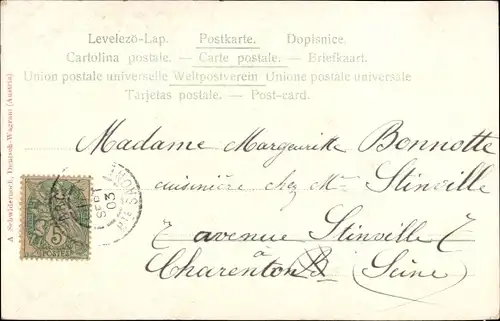 Levelezö-Lap. Postkarte. Dopisnice.
Cartolina postale. — Carte postale. — Briefkaart.
Union postale universelle Weltpostverein Unione postale universale
Tarjetas postale. — Post-card.
A. Schwidernoch, Deutsch-Wagram (Austria)
Madame Marguerite Bonnotte
cuisinière chez Mr Stinville
7 avenue Stinville 7
à
Charenton (Seine)
SEPT
03
5
POSTES